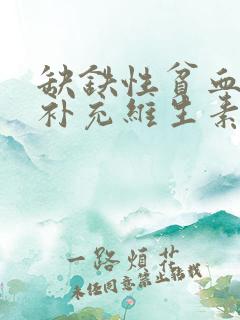 缺鉄性貧血
补充維生素
一路煩花
未经同意禁止转载